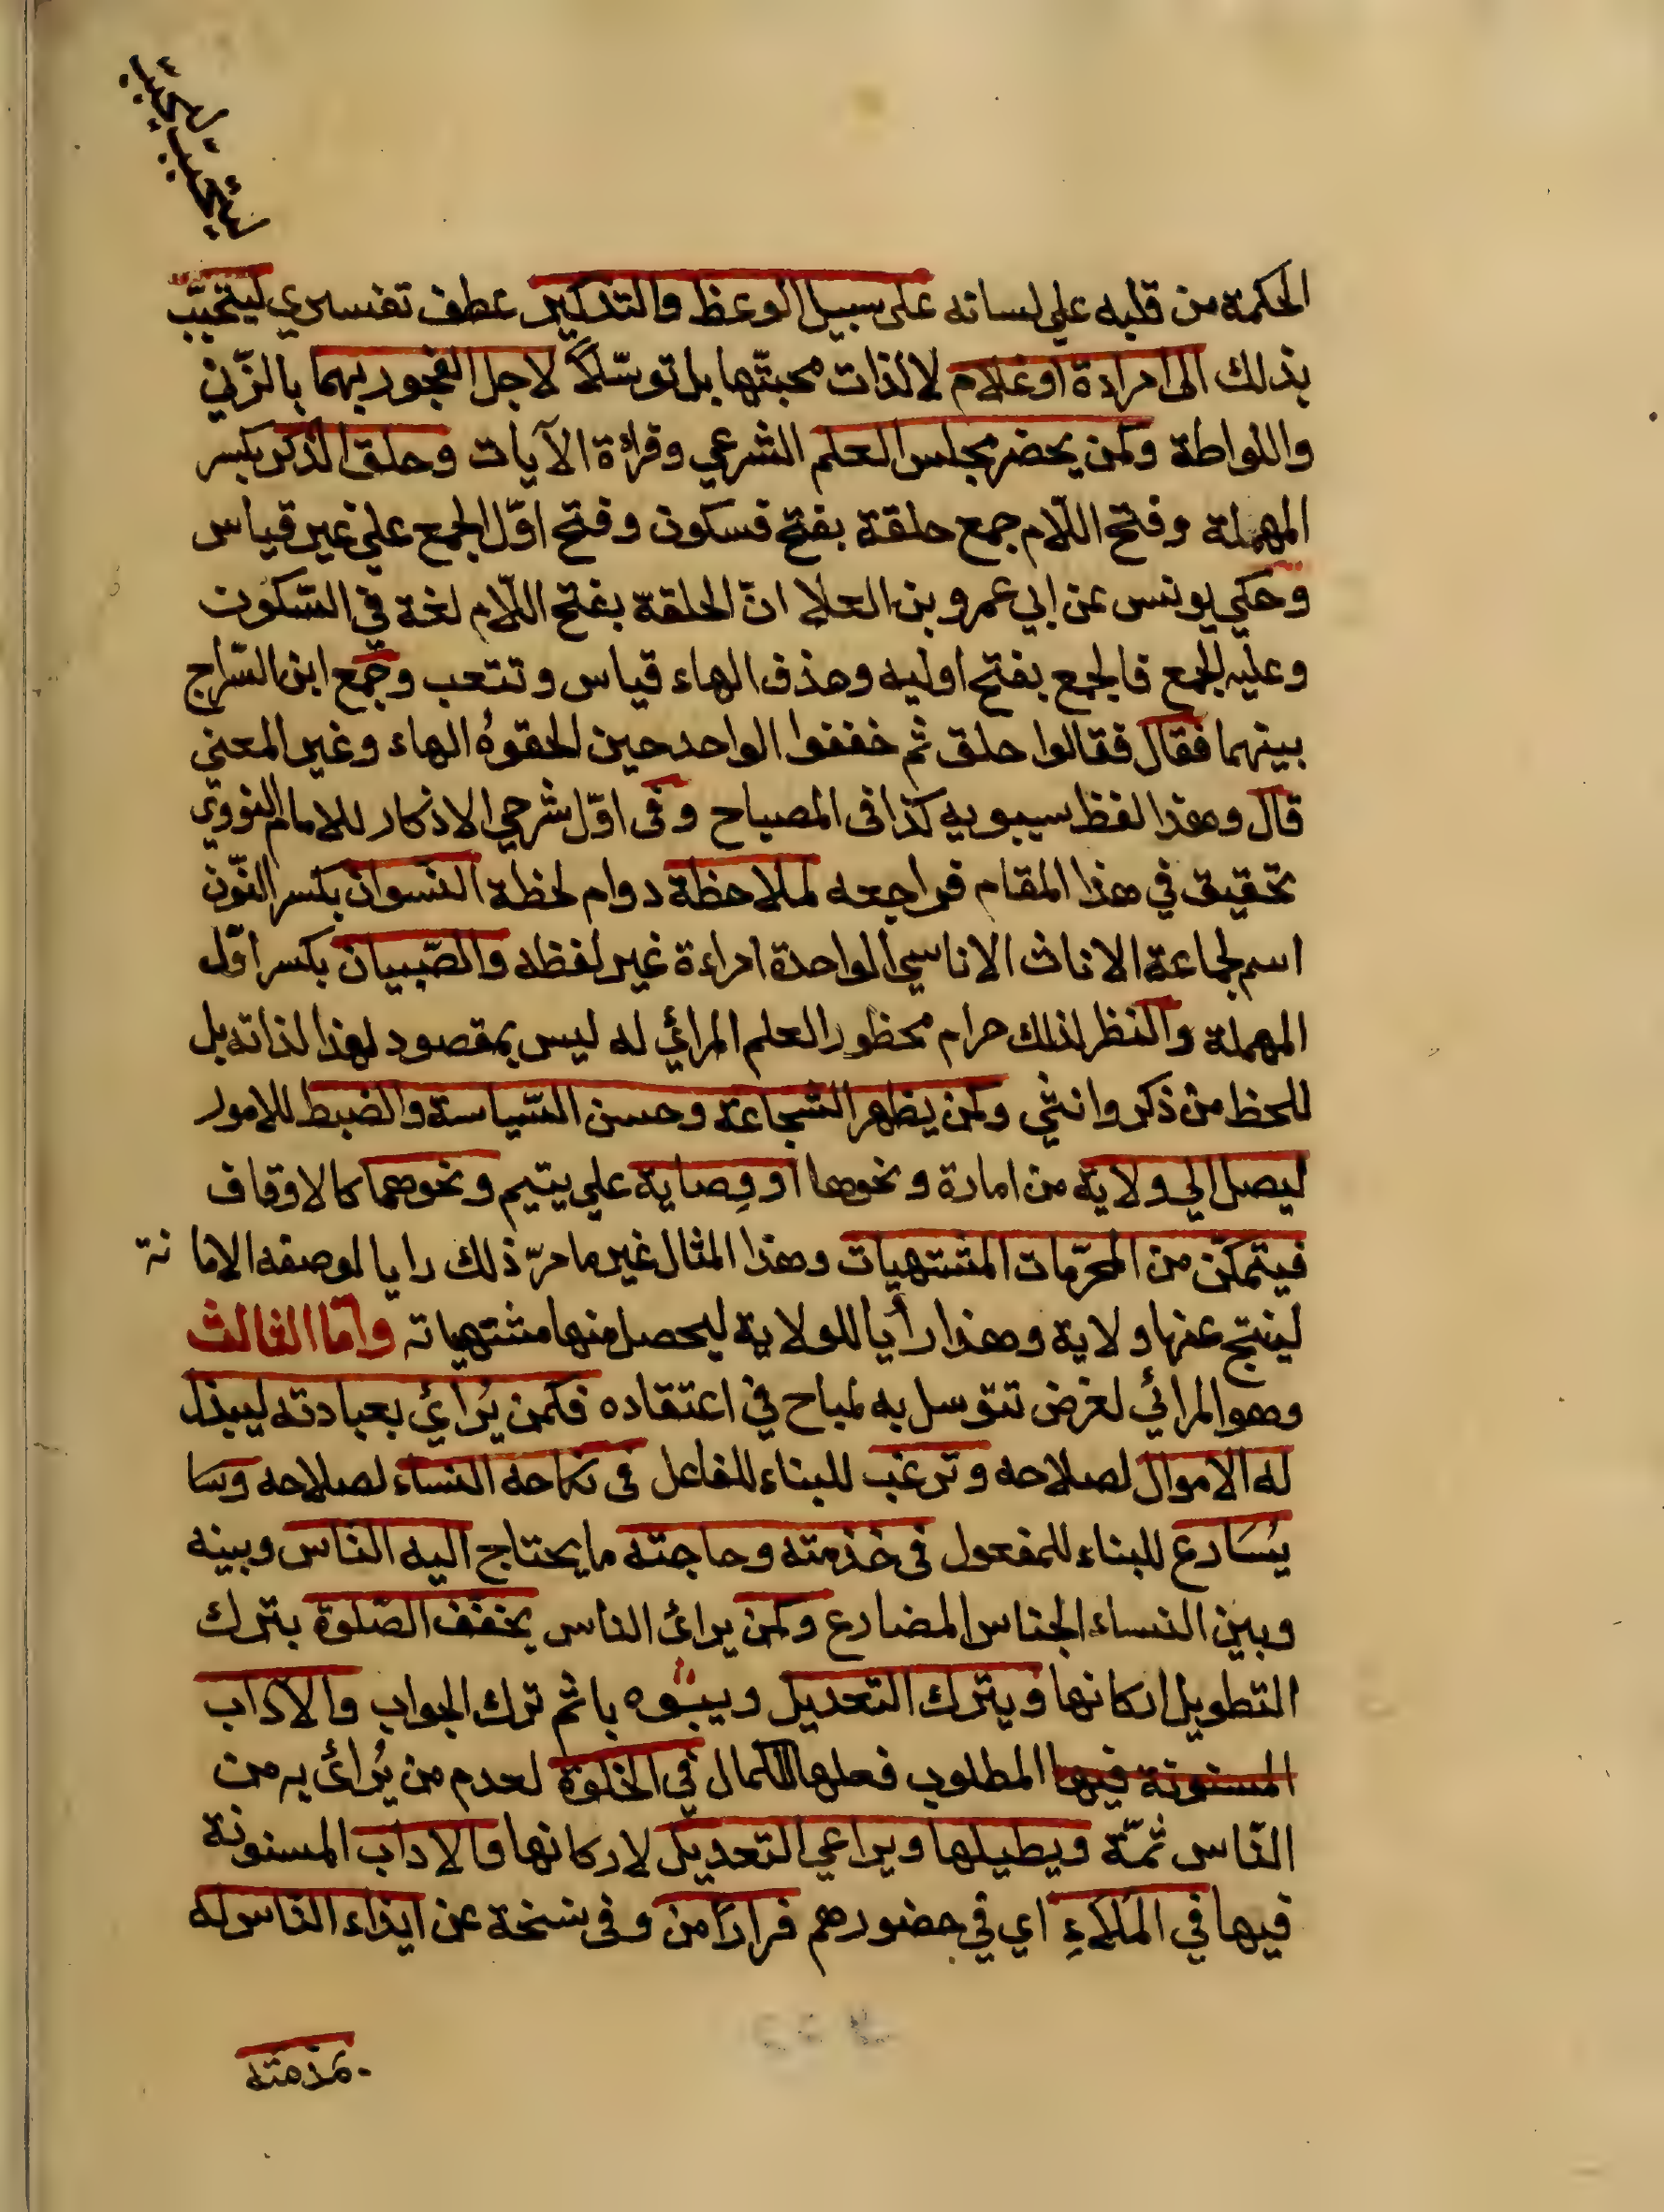 الحكمة من قلبه علي لسانه على سبيل الوعظ والتذكير عطف تفسيري ليتحبّب
بذلك الى امراة او غلام لا لذات محبتّها بل توسّلاً لاجل الفجور بهما بالزّني
واللواطة وكمن يحضر مجلس العلم الشرعي وقراءة الآيات وحلق الذكر بكسر
المهملة وفتح اللّام جمع حلقة بفتح فسكون وفتح اوّل الجمع علي غير قياس
وحكي يونس عن ابي عمرو بن العلا انّ الحلقة بفتح اللّام لغة في السّكون
وعليه الجمع فالجمع بفتح اوليه وحذف الهاء قياس وتتعب وجمع ابن السّراج
بينهما فقال فقالوا حلق ثم خففوا الواحد حين الحقوهُ الهاء وغير المعني
قال وهذا لفظ سيبويه كذا في المصباح وفى اوّل شرحي الاذكار للامام النووي
تحقيق في هذا المقام فراجعه لملاحظة دوام لحظة النسوان بكسر النّون
اسم لجماعة الاناث الاناسي الواحدة امراءة غير لفظه والصّبيان بكسر اوّل
المهملة والنظر لذلك حرام محظور العلم المرائي له ليس بمقصود لهذا لذاته بل
للحظ من ذكر وانثي وكمن يظهر الشجاعة وحسن السّياسة والضبط للامور
ليصل الي ولاية من امارة ونحوها او وِصاية علي يتيم ونحوهما كالاوقاف
فيتمكّن من المحرّمات المشتهيات وهذا المثال غير ما مرّ ذلك رايا لوصفه الامانة
لينتج عنها ولاية وهذا رأيا للولاية ليحصل منها مشتهياته وامّا الثالث
وهو المرائي لغرض تتوسل به لمباح في اعتقاده فكمن يُرائي بعبادته ليبذل
له الاموال لصلاحه وترغب للبناء للفاعل فى نكاحه النساء لصلاحه وسَا
يسَارع للبناء للمفعول فى خذمته وحاجته ما يحتاج اليه الناس وبينه
وبين النساء الجناس المضارع وكمن يرائ الناس يخفف الصّلوة بترك
التطويل اركانها ويترك التعديل ويبوء باثم ترك الجواب والاداب
المسنونة فيها المطلوب فعلها للكمال في الخلوة لعدم من يُرائ به من
النّاس ثمّة ويطيلها ويراعي التعديل لاركانها والاداب المسنونة
فيها في الملاءِ اي في حضورهم فرارًا من وفى نسخة عن ايذاء الناس له
بمذمته